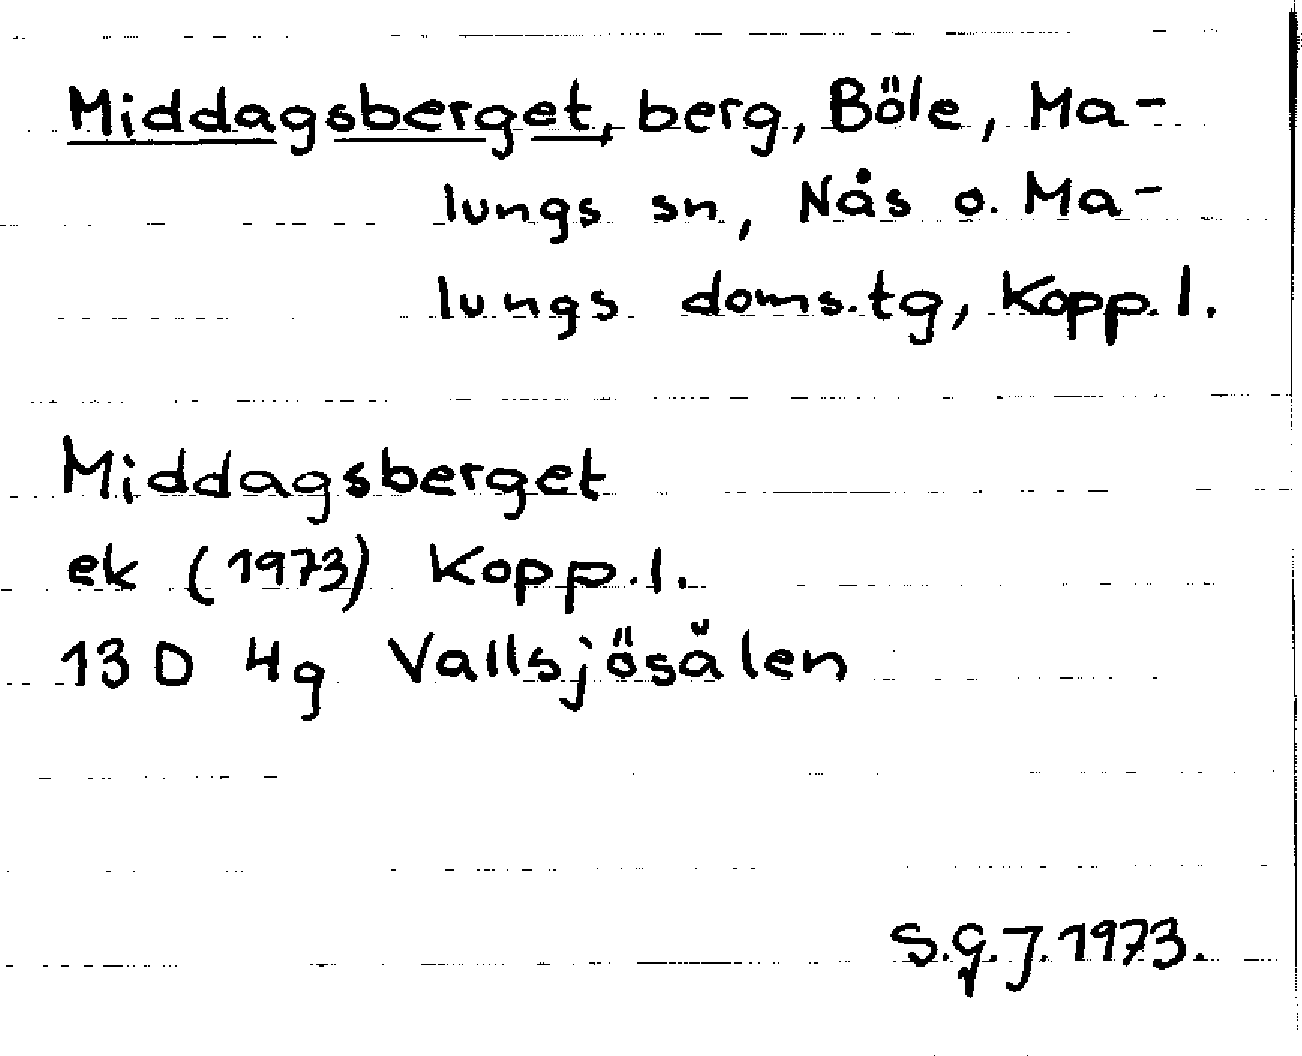 Middagsberget, berg, Böle, Ma-
lungs sn, Nås o. Ma-
lungs doms.tg, Kopp.l.
Middagsberget
ek (1973) Kopp.l.
13 D 4g Vallsjösälen
S.G.J. 1973.